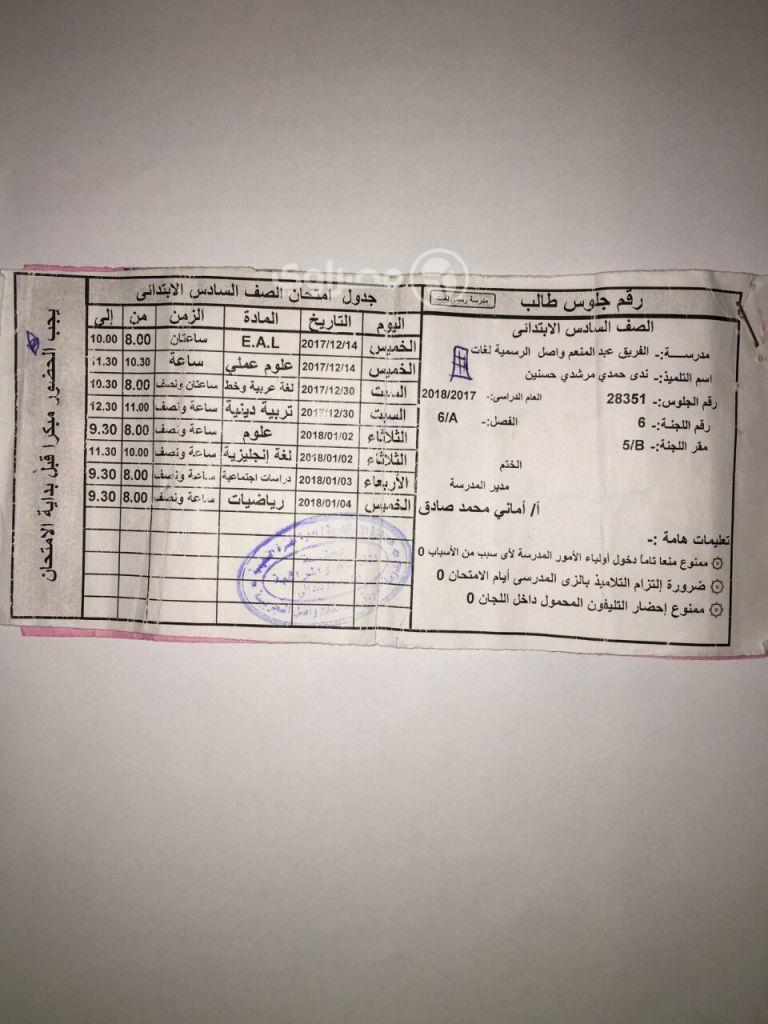 رقم جلوس طالب
الصف السادس الابتدائى
مدرســـة:- الفريق عبد المنعم واصل الرسمية لغات
اسم التلميذ:- ندى حمدي مرشدي حسنين
رقم الجلوس:- 28351 العام الدراسى:- 2018/2017
رقم اللجنة:- 6 الفصل:- 6/A
مقر اللجنة:- 5/B
الختم
مدير المدرسة
أ/ أماني محمد صادق
تعليمات هامة :-
ممنوع منعا تاماً دخول أولياء الأمور المدرسة لأى سبب من الأسباب 0
ضرورة إلتزام التلاميذ بالزى المدرسى أيام الامتحان 0
ممنوع إحضار التليفون المحمول داخل اللجان 0
جدول امتحان الصف السادس الابتدائى
اليوم التاريخ المادة الزمن من إلى
الخميس 2017/12/14 E.A.L ساعتان 8.00 10.00
الخميس 2017/12/14 علوم عملي ساعة 10.30 11.30
السبت 2017/12/30 لغة عربية وخط ساعتان ونصف 8.00 10.30
السبت 2017/12/30 تربية دينية ساعة ونصف 11.00 12.30
الثلاثاء 2018/01/02 علوم ساعة ونصف 8.00 9.30
الثلاثاء 2018/01/02 لغة إنجليزية ساعة ونصف 10.00 11.30
الأربعاء 2018/01/03 دراسات اجتماعية ساعة ونصف 8.00 9.30
الخميس 2018/01/04 رياضيات ساعة ونصف 8.00 9.30
يجب الحضور مبكرا قبل بداية الامتحان